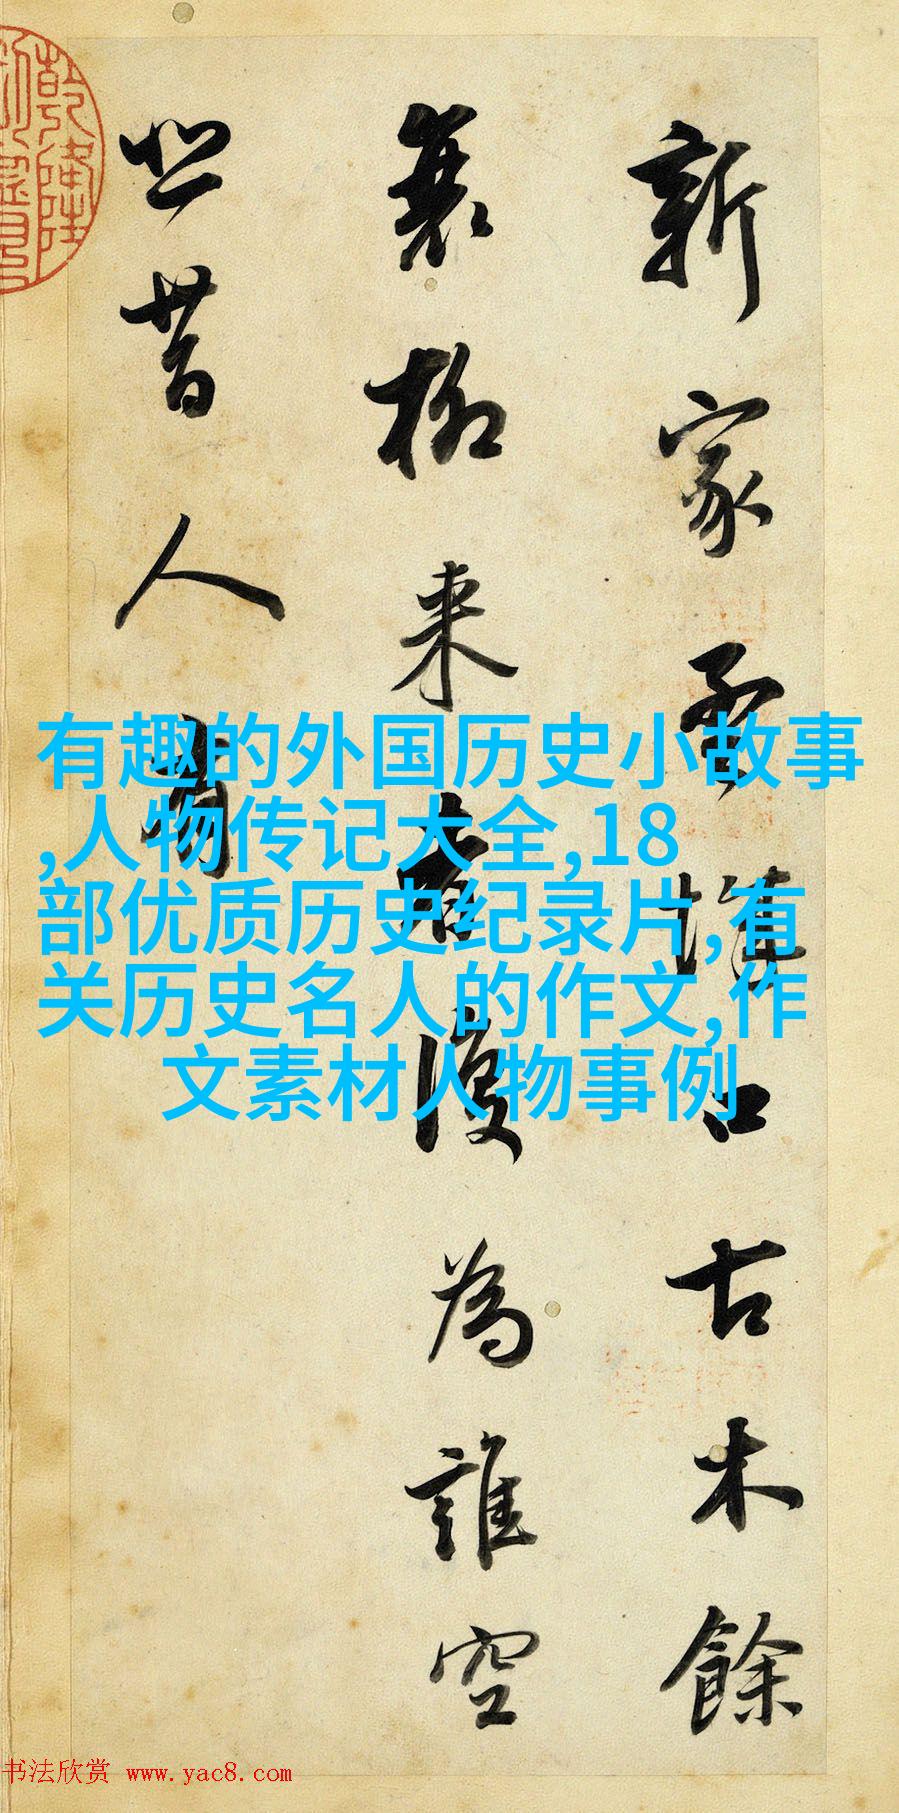 新家孟城口古木餘
衰柳来者復為誰空
悲昔人有
乾隆
有趣的外国历史小故事
,人物传记大全,18
部优质历史纪录片,有
关历史名人的作文,作
文素材人物事例
书法欣赏 www.yac8.com